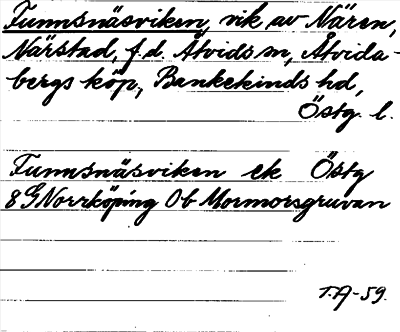 Tunnsnäsviken, vik av Nären,
Närstad, f.d. Åtvids sn, Åtvida-
bergs köp, Bankekinds hd,
Östg. l.
Tunnsnäsviken ek Östg
8G Norrköping 0b Mormorsgruvan
T.A-59.